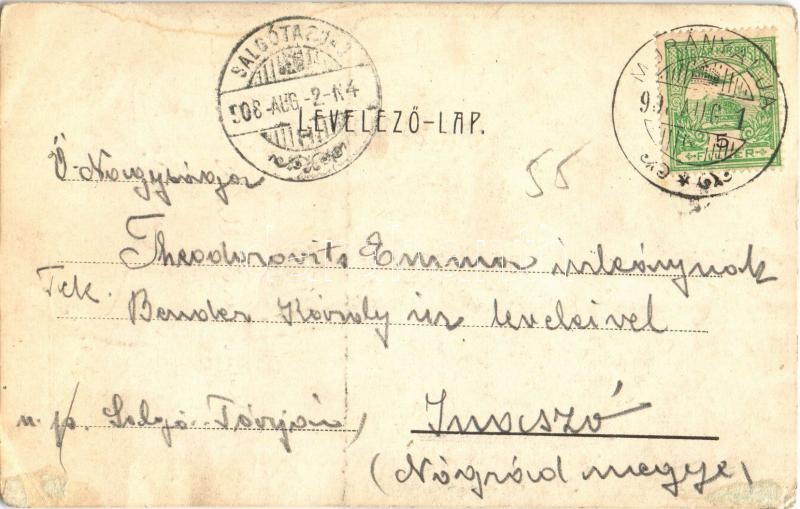 SALGÓTARJÁN
908 AUG. -2-N4
LEVELEZŐ-LAP.
MURÁNYALJA
AUG 1
5
FILLÉR
55
Ő Nagysága
Theodorovits Emma úrleánynak
Tek. Bender Károly úr leveleivel
u. p. Salgó-Tarján
Inaszó
(Nógrád megye)